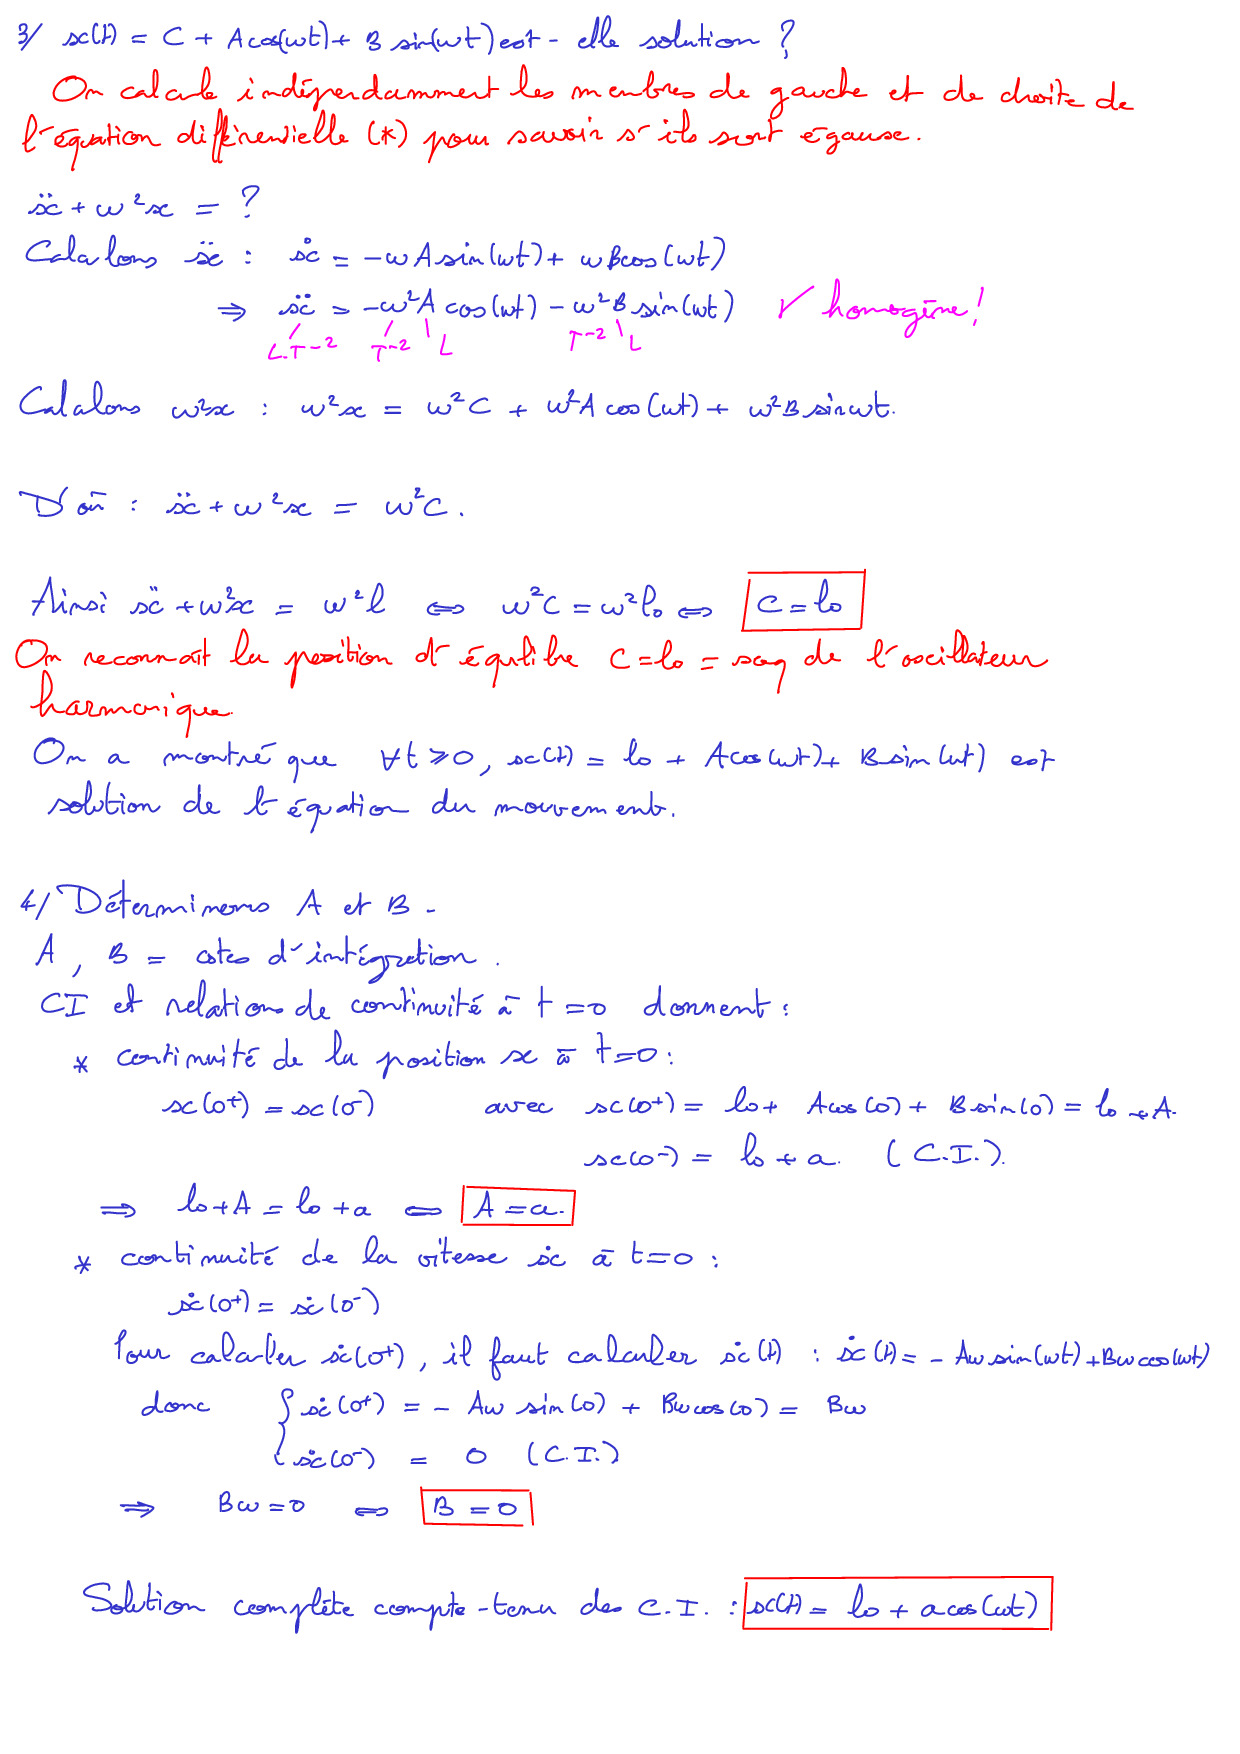 3/ x(t) = C + A cos(ωt) + B sin(ωt) est-elle solution ?
On calcule indépendamment les membres de gauche et de droite de
l'équation différentielle (*) pour savoir s'ils sont égaux.
ẍ + ω²x = ?
Calculons ẍ : ẋ = -ωA sin(ωt) + ωB cos(ωt)
⇒ ẍ = -ω²A cos(ωt) - ω²B sin(ωt) ✓ homogène !
L.T⁻² T⁻² L T⁻² L
Calculons ω²x : ω²x = ω²C + ω²A cos(ωt) + ω²B sin ωt.
D'où : ẍ + ω²x = ω²C.
Ainsi ẍ + ω²x = ω²l ⇔ ω²C = ω²l₀ ⇔ C = l₀
On reconnaît la position d'équilibre C = l₀ = xeq de l'oscillateur
harmonique.
On a montré que ∀t ⩾ 0, x(t) = l₀ + A cos(ωt) + B sin(ωt) est
solution de l'équation du mouvement.
4/ Déterminons A et B -
A, B = cstes d'intégration.
CI et relations de continuité à t = 0 donnent :
* continuité de la position x à t=0 :
x(0⁺) = x(0⁻) avec x(0⁺) = l₀ + A cos(0) + B sin(0) = l₀ + A.
x(0⁻) = l₀ + a. (C.I.).
⇒ l₀ + A = l₀ + a ⇔ A = a.
* continuité de la vitesse ẋ à t=0 :
ẋ(0⁺) = ẋ(0⁻)
Pour calculer ẋ(0⁺), il faut calculer ẋ(t) : ẋ(t) = - Aω sin(ωt) + Bω cos(ωt)
donc { ẋ(0⁺) = - Aω sin(0) + Bω cos(0) = Bω
ẋ(0⁻) = 0 (C.I.)
⇒ Bω = 0 ⇔ B = 0
Solution complète compte-tenu des C.I. : x(t) = l₀ + a cos(ωt)